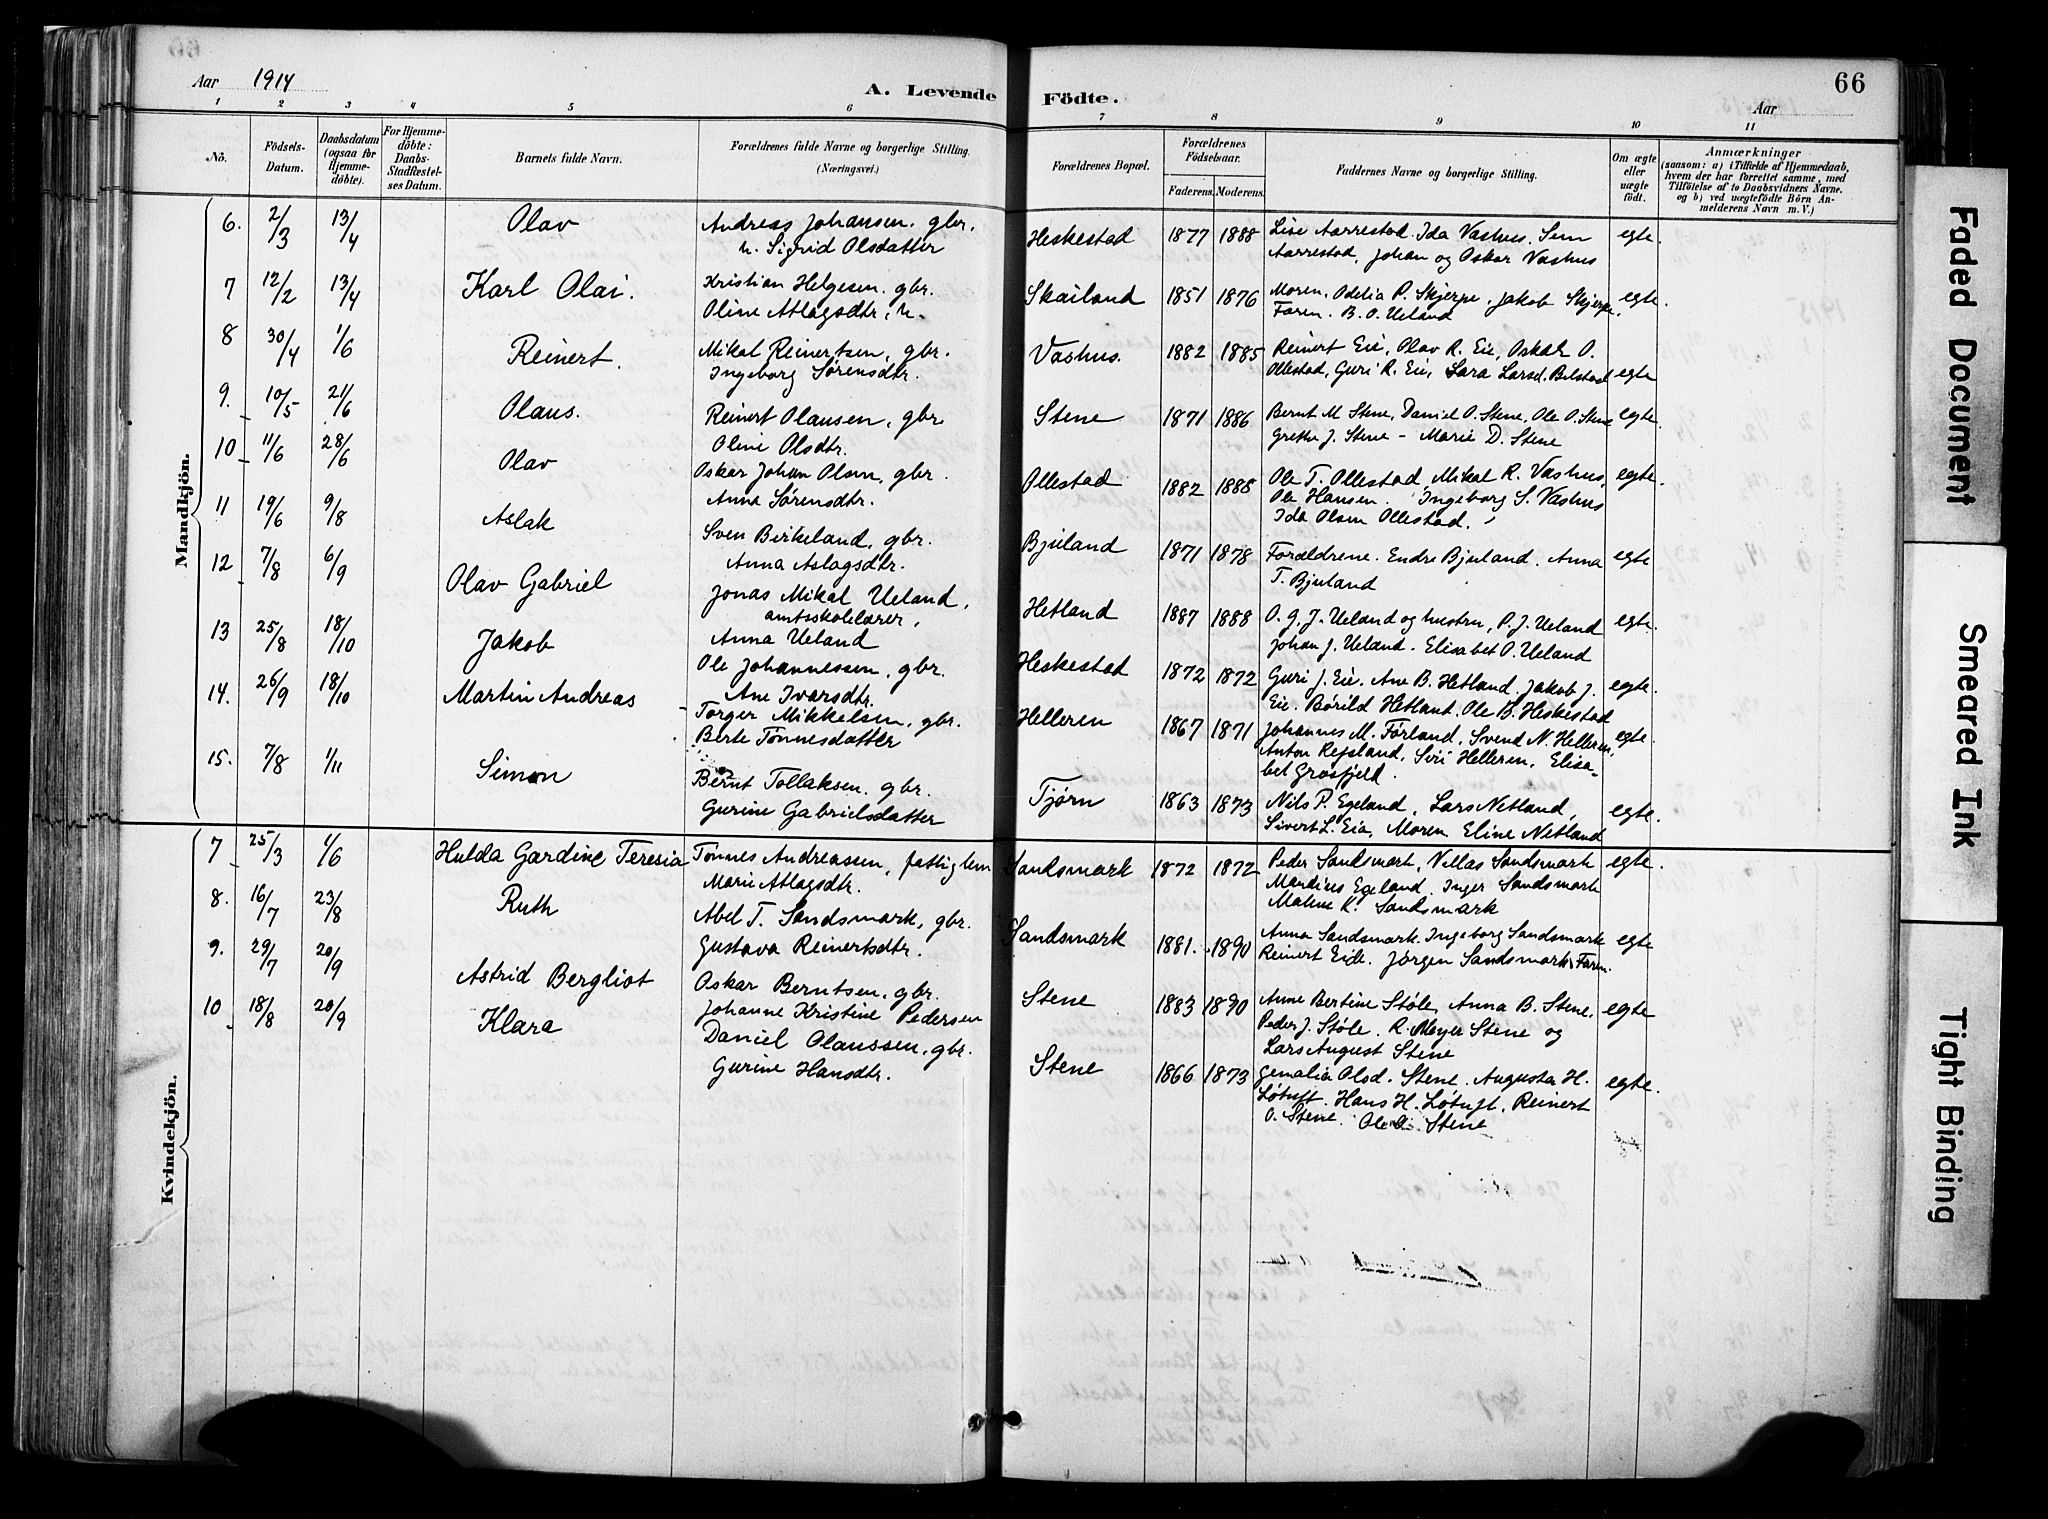 Aar 1914
A. Levende Födte.
66
Aar
1 2 3 4 5 6 7 8 9 10 11
No.
Födsels-Datum.
Daabsdatum (ogsaa for Hjemmedöbte).
For Hjemmedöbte: Daabs-Stadfæstelses Datum.
Barnets fulde Navn.
Forældrenes fulde Navne og borgerlige Stilling. (Næringsvei.)
Forældrenes Bopæl.
Forældrenes Födselsaar.
Faderens. Moderens.
Faddernes Navne og borgerlige Stilling.
Om ægte eller uægte födt.
Anmærkninger
(saasom: a) i Tilfælde af Hjemmedaab, hvem der har forrettet samme, med Tilföielse af to Daabsvidners Navne, og b) ved uægtefödte Börn Anmelderens Navn m. V.)
Mandkjön.
6. 2/3 13/4 Olav Andreas Johansen, gbr. Heskestad 1877 1888 Lise Aarrestad. Ida Vashus. Sem egte.
h. Sigrid Olsdatter Aarrestad, Johan og Oskar Vashus
7 12/2 13/4 Karl Olai. Kristian Helgesen. gbr. Skailand 1851 1876 Moren, Odelia P. Skjerpe, Jakob Skjerpe egte.
Oline Atlagsdtr, h. Faren. B. O. Ueland
8 30/4 1/6 Reinert. Mikal Reinertsen, gbr. Vashus. 1882 1885 Reinert Eie, Olav R. Eie, Oskar O.
Ingeborg Sørensdtr. Ollestad, Guri R. Eie, Sara Larsd. Belstad egte
9. 10/5 21/6 Olaus. Reinert Olausen, gbr. Stene 1871 1886 Bernt M Stene, Daniel O. Stene, Ole O. Stene egte.
Oline Olsdtr. Grethe J. Stene - Marie D. Stene
10 11/6 28/6 Olav Oskar Johan Olsen, gbr. Ollestad 1882 1888 Ole T. Ollestad, Mikal R. Vashus, egte.
Anna Sørensdtr. Ole Hansen. Ingeborg S. Vashus
Ida Olsen Ollestad.
11 19/6 9/8 Aslak Sven Birkeland, gbr. Bjuland 1871 1878 Forældrene. Endre Bjuland. Anna egte
Anna Aslagsdtr. T. Bjuland
12 7/8 6/9 Olav Gabriel Jonas Mikal Ueland, Hetland 1887 1888 O. G. J. Ueland og hustru, P. J. Ueland egte.
amtsskolelærer,
Anna Ueland Johan J. Ueland - Elisabet O. Ueland
13 25/8 18/10 Jakob Ole Johannessen, gbr. Heskestad 1872 1872 Guri J. Eie. Ane B. Hetland. Jakob J. egte.
Ane Ivarsdtr. Eie. Børild Hetland. Ole B. Heskestad
14. 26/9 18/10 Martin Andreas Torger Mikkelsen, gbr. Helleren 1867 1871 Johannes M. Førland, Svend N. Helleren egte.
Berte Tønnesdatter Anton Refsland, Siri Helleren, Elisa-
bet Grøsfjeld.
15. 7/8 1/11 Simon Bernt Tollaksen. gbr. Tjørn 1863 1873 Nils P. Egeland, Lars Netland, egte.
Gurine Gabrielsdatter Sivert L. Eia, Moren Eline Netland
Kvindekjön.
7 25/3 1/6 Hulda Gardine Teresia Tønnes Andreassen, fattiglem Sandsmark 1872 1872 Peder Sandsmark, Villas Sandsmark egte.
Marie Atlagsdtr. Mandius Egeland. Inger Sandsmark
Malene K. Sandsmark
8. 16/7 23/8 Ruth Abel T. Sandsmark, gbr. Sandsmark 1881. 1890 Anna Sandsmark. Ingeborg Sandsmark egte
Gustava Reinertsdtr. Reinert Eide. Jørgen Sandsmark. Faren.
9. 29/7 20/9 Astrid Bergliot Oskar Berntsen, gbr. Stene 1883 1890 Anne Bertine Støle, Anna B. Stene, egte
Johanne Kristine Pedersen Peder J. Støle. R. Meyer Stene og
Lars August Stene
10 18/8 20/9 Klara Daniel Olaussen, gbr. Stene 1866 1873 Olsd. Stene. Augusta H. egte.
Gurine Hansdtr. Løtuft. Hans H. Løtuft, Reinert
O. Stene. Ole O. Stene
Faded Document
Smeared Ink
Tight Binding